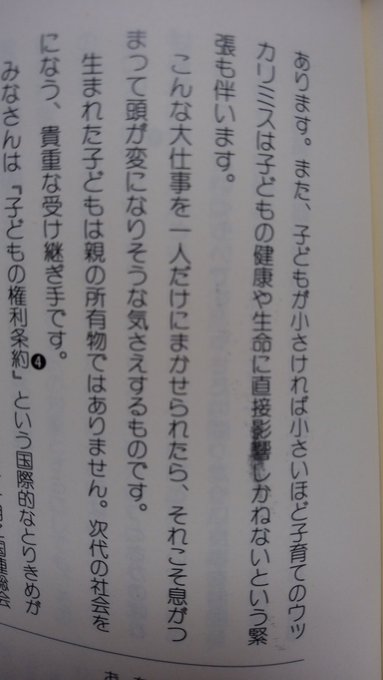 あります。また、子どもが小さければ小さいほど子育てのウッ
カリミスは子どもの健康や生命に直接影響しかねないという緊
張も伴います。
こんな大仕事を一人だけにまかせられたら、それこそ息がつ
まって頭が変になりそうな気さえするものです。
生まれた子どもは親の所有物ではありません。次代の社会を
になう、貴重な受け継ぎ手です。
みなさんは『子どもの権利条約』❹という国際的なとりきめが